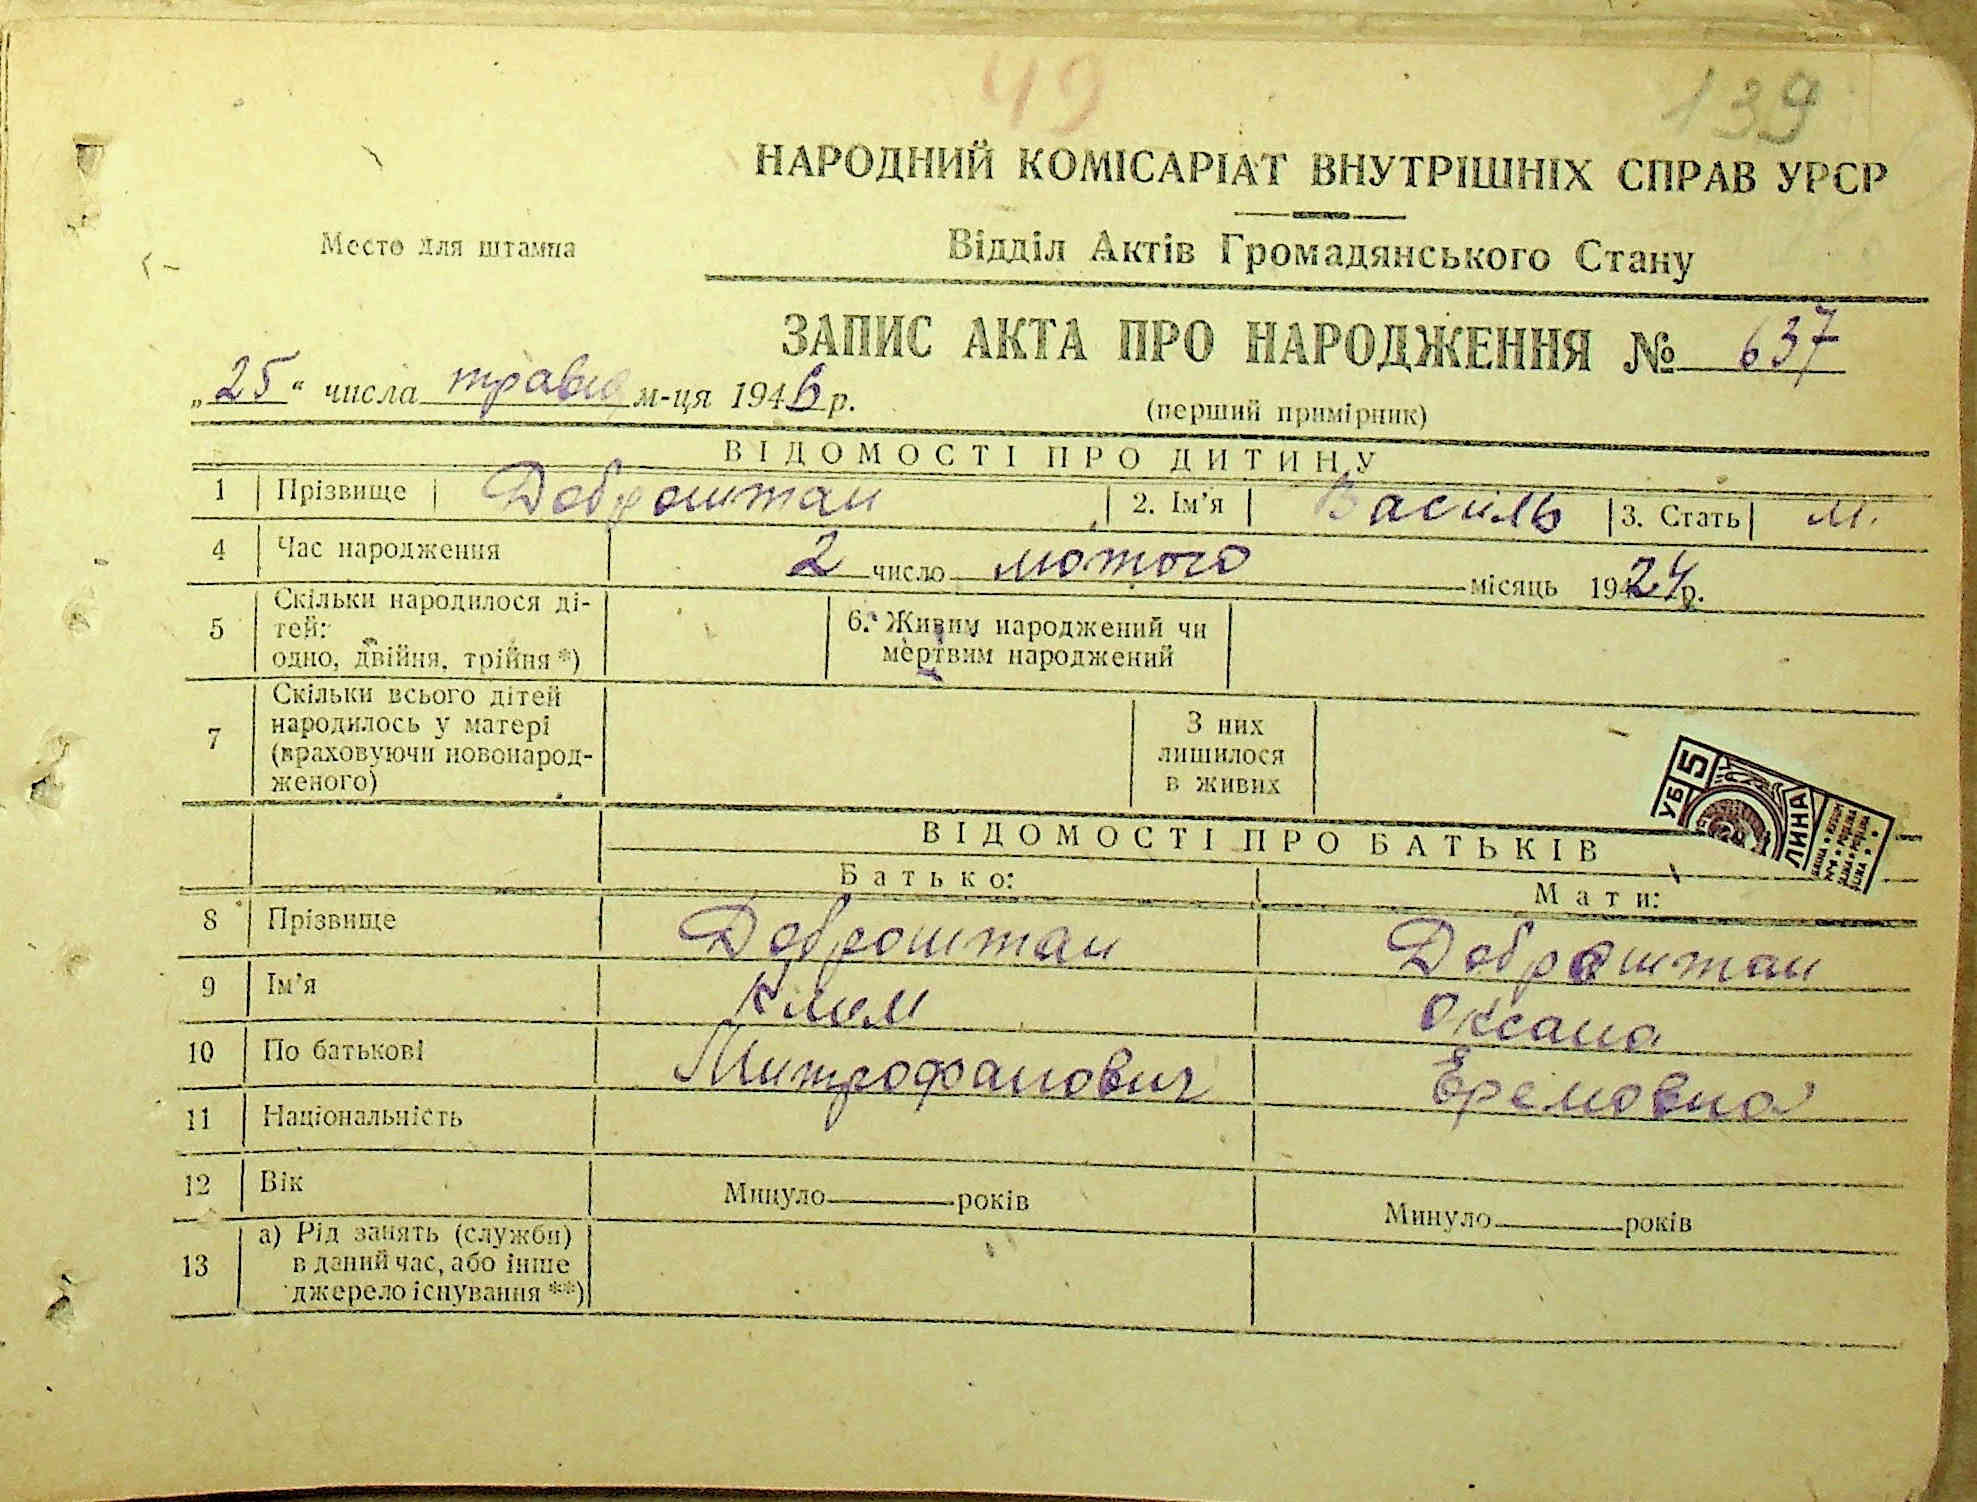 49
139
НАРОДНИЙ КОМІСАРІАТ ВНУТРІШНІХ СПРАВ УРСР
Место для штампа
Відділ Актів Громадянського Стану
ЗАПИС АКТА ПРО НАРОДЖЕННЯ № 637
„25“ числа травня м-ця 1946 р.
(перший примірник)
ВІДОМОСТІ ПРО ДИТИНУ
1 Прізвище Доброштан 2. Ім'я Василь 3. Стать м.
4 Час народження 2 число лютого місяць 1924 р.
5 Скільки народилося ді-
тей:
одно, двійня, трійня *)
6. Живим народжений чи
мертвим народжений
7 Скільки всього дітей
народилось у матері
(враховуючи новонарод-
женого)
З них
лишилося
в живих
УБ 5
ЛИНА
ВІДОМОСТІ ПРО БАТЬКІВ
Батько: Мати:
8 Прізвище Доброштан Доброштан
9 Ім'я Клим Оксана
10 По батькові Митрофанович Еремовна
11 Національність
12 Вік Минуло років Минуло років
13 а) Рід занять (служби)
в даний час, або інше
джерело існування **)